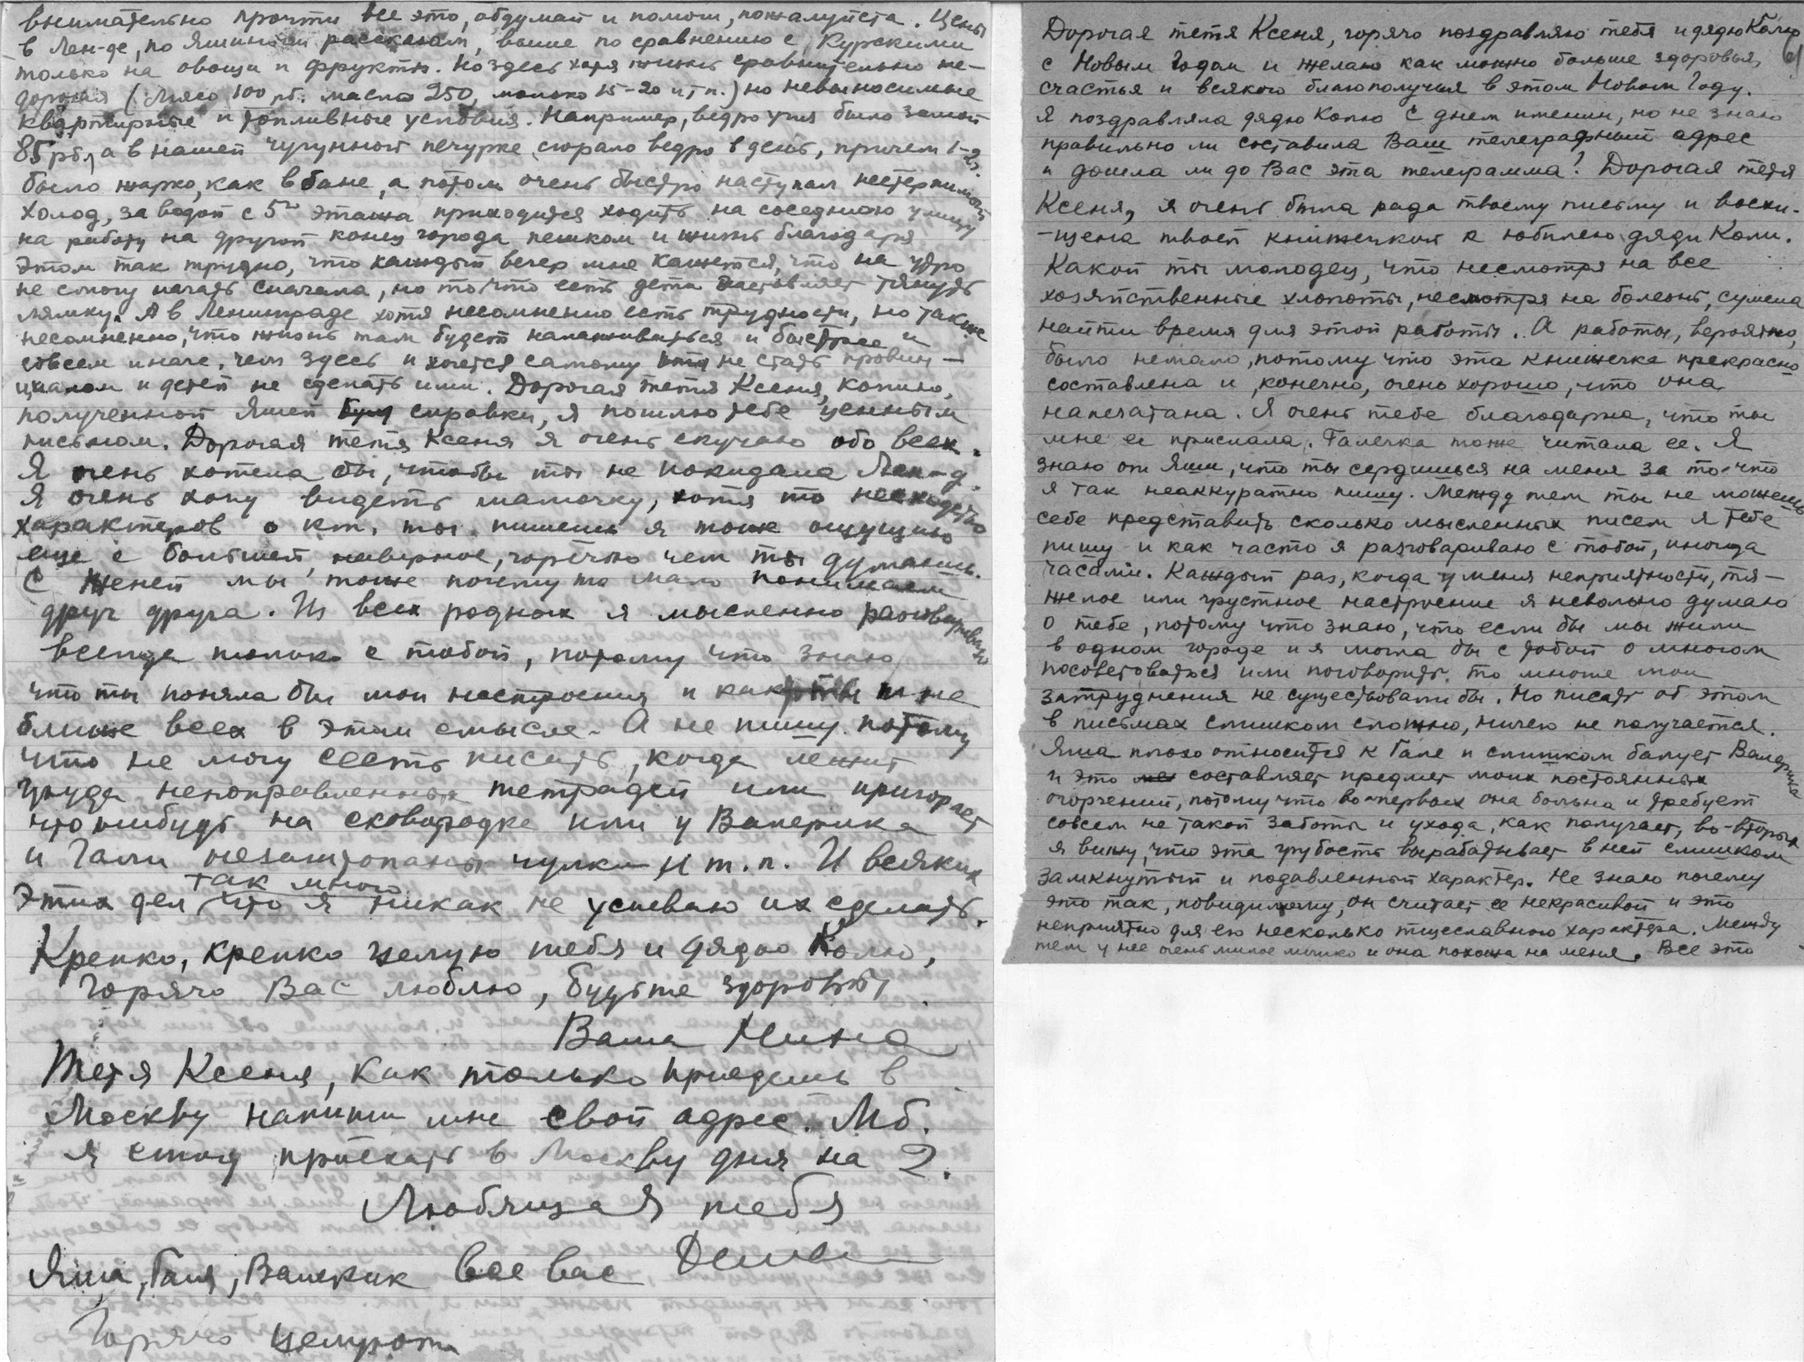 внимательно прочти все это, обдумай и помоги, пожалуйста. Цены
в Лен-де, по Яшиным рассказам, выше по сравнению с Курскими
только на овощи и фрукты. Но здесь хотя жизнь сравнительно не-
дорогая (мясо 100 рб. масло 250, молоко 15-20 и т п.) но невыносимые
квартирные и топливные условия. Например, ведро угля было зимой
85 рбл, а в нашей чугунной печурке сгорало ведро в день, причем 1-2 ч.
было жарко, как в бане, а потом очень быстро наступал нестерпимый
холод, за водой с 5го этажа приходится ходить на соседнюю улицу
на работу на другой конец города пешком и жить благодаря
этом так трудно, что каждый вечер мне кажется, что на утро
не смогу начать сначала, но то что есть дети заставляет тянуть
лямку. А в Ленинграде хотя несомненно есть трудности, но также
несомненно, что жизнь там будет налаживаться и быстрее и
совсем иначе, чем здесь и хочется самому не стать провин-
циалом и детей не сделать ими. Дорогая тетя Ксеня, копию,
полученной Яшей справки, я пошлю тебе ценным
письмом. Дорогая тетя Ксеня я очень скучаю обо всех.
Я очень хотела бы, чтобы ты не покидала Лен-д.
Я очень хочу видеть мамочку, хотя то несходство
характеров о кот. ты пишешь я тоже ощущаю
еще с большей, наверное, горечью чем ты думаешь.
С Женей мы тоже почему то мало понимаем
друг друга. Из всех родных я мысленно разговариваю
всегда только с тобой, потому что знаю,
что ты поняла бы мои настроения и как-то ты мне
ближе всех в этом смысле. А не пишу потому
что не могу сесть писать, когда лежит
груда неисправленных тетрадей или пригорает
что нибудь на сковородке или у Валерика
и Гали незаштопаны чулки и т. п. И всяких
этих дел так много что я никак не успеваю их сделать.
Крепко, крепко целую тебя и дядю Колю,
горячо Вас люблю, будьте здоровы
Ваша Нина
Тетя Ксеня, как только приедешь в
Москву напиши мне свой адрес. М.б.
я смогу приехать в Москву дня на 2.
Любящая тебя
Яша, Галя, Валерик все вас
Горячо целуют
Дорогая тетя Ксеня, горячо поздравляю тебя и дядю Колю
с Новым Годом и желаю как можно больше здоровья,
счастья и всякого благополучия в этом Новом Году.
Я поздравляла дядю Колю с днем именин, но не знаю
правильно ли составила Ваш телеграфный адрес
и дошла ли до Вас эта телеграмма? Дорогая тетя
Ксеня, я очень была рада твоему письму и восхи-
-щена твоей книжечкой к юбилею дяди Коли.
Какой ты молодец, что несмотря на все
хозяйственные хлопоты, несмотря на болезнь, сумела
найти время для этой работы. А работы, вероятно,
было немало, потому что эта книжечка прекрасно
составлена и, конечно, очень хорошо, что она
напечатана. Я очень тебе благодарна, что ты
мне ее прислала. Галечка тоже читала ее. Я
знаю от Яши, что ты сердишься на меня за то что
я так неаккуратно пишу. Между тем ты не можешь
себе представить сколько мысленных писем я тебе
пишу и как часто я разговариваю с тобой, иногда
часами. Каждый раз, когда у меня неприятности, тя-
желое или грустное настроение я невольно думаю
о тебе, потому что знаю, что если бы мы жили
в одном городе и я могла бы с тобой о многом
посоветоваться или поговорить, то многие мои
затруднения не существовали бы. Но писать об этом
в письмах слишком сложно, ничего не получается.
Яша плохо относится к Гале и слишком балует Валерика
и это составляет предмет моих постоянных
огорчений, потому что во-первых она больна и требует
совсем не такой заботы и ухода, как получает, во-вторых
я вижу, что эта грубость вырабатывает в ней слишком
замкнутый и подавленный характер. Не знаю почему
это так, повидимому, он считает ее некрасивой и это
неприятно для его несколько тщеславного характера. Между
тем у нее очень милое личико и она похожа на меня. Все это